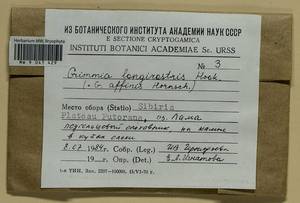 Herbarium MW, Bryophyta
MW 9 041 429
ИЗ БОТАНИЧЕСКОГО ИНСТИТУТА АКАДЕМИИ НАУК СССР
E SECTIONE CRYPTOGAMICA
INSTITUTI BOTANICI ACADEMIAE Sc. URSS
№ 3
Grimmia longirostris Hook.
(= G. affinis Hornsch.)
Место сбора (Statio) Sibiria
Plateau Putorana, оз. Лама
на камне
8.07 1984 г. Собр. (Leg.)
19 г. Опр. (Det.) Игнатова
1-я ТИП. Зак. 2297—100000. 15/VI-70 г.